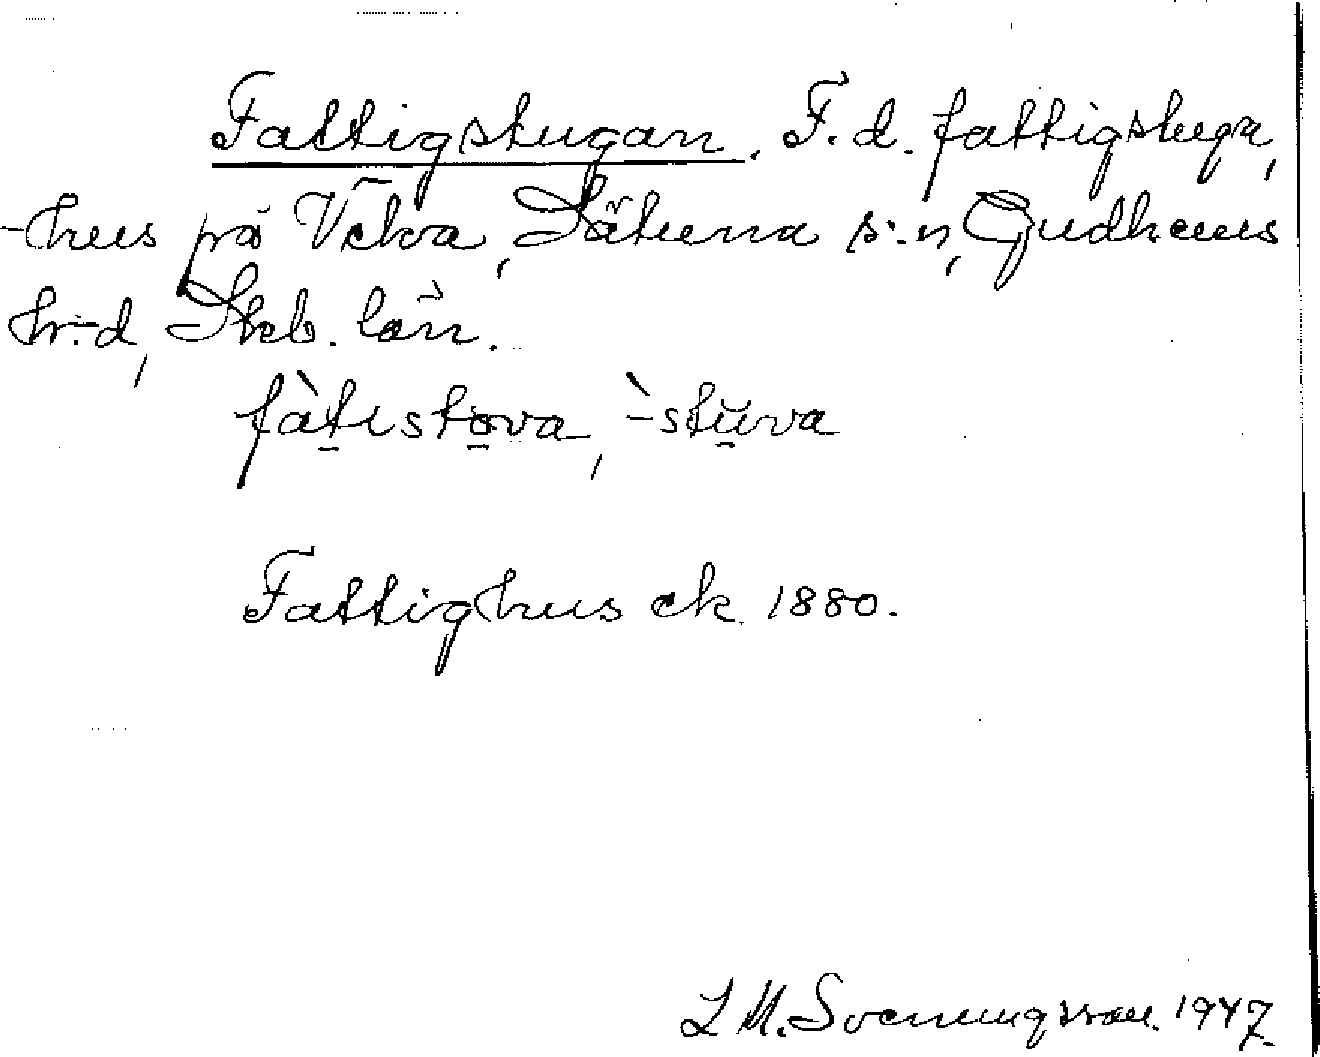 Fattigstugan. F.d. fattigstuga,
-hus på Vilva, Sätuna s:n, Gudhems
hr:d, Skb. län.
fàtistova, `-stŭva
Fattighus ck 1880.
L M. Svenungsson. 1947.